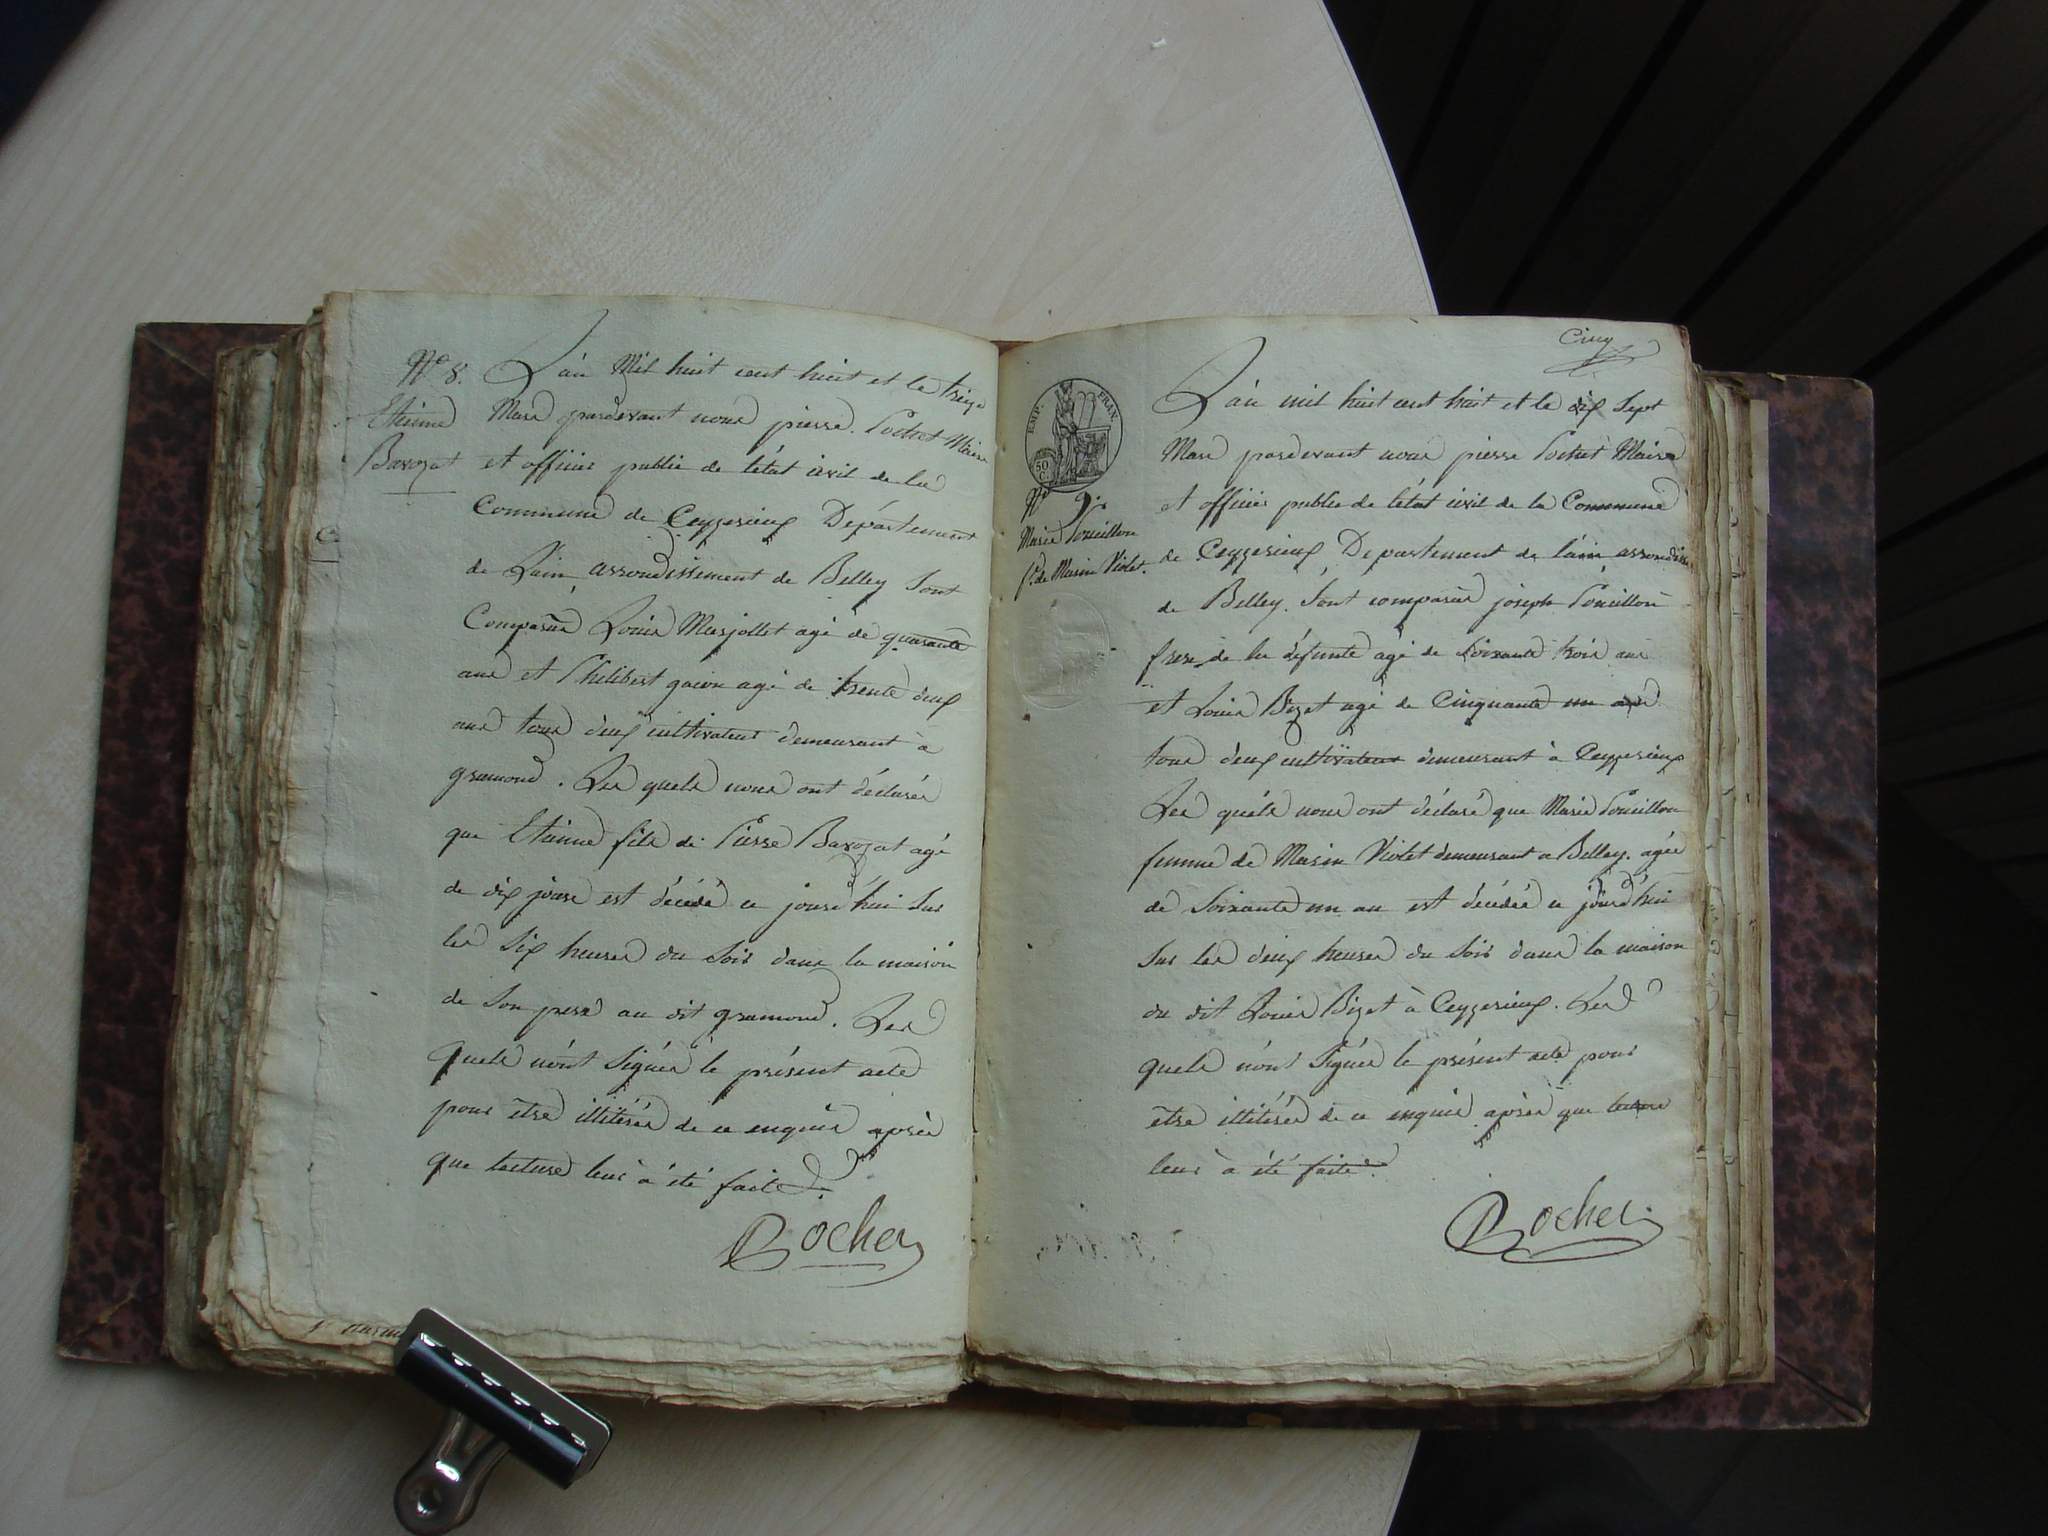 N° 8.
Etienne
Barozat
L'an Mil huit cent huit et le treize
Mars pardevant nous pierre Pochet Maire
et officier public de l'état civil de la
Commune de Ceyzerieux Département
de L'ain, arrondissement de Belley Sont
Comparus Louis Marjollet agé de quarante
ans et Philibert goion agé de trente deux
ans tous deux cultivateurs demeurant à
gramond. Les quels nous ont déclarés
que Etienne fils de Pierre Barozat agé
de dix jours est décédé ce jourd'hui Sur
les Six heures du Soir dans la maison
de Son pere au dit gramond. Les
quels n'ont Signés le présent acte
pour être illitérés de ce enquis après
que lecture leur à été faite.
Pochet
Cinq
EMP. FRAN.
50 C.
N° 9.
Marie Pouillon
f.e de Marin Violet.
L'an mil huit cent huit et le dix Sept
Mars pardevant nous pierre Pochet Maire
et officier public de l'état civil de la Commune
de Ceyzerieux Département de l'ain arrondis
de Belley. Sont comparus joseph Pouillon
frere de la défunte agé de Soixante trois ans
et Louis Bizet agé de Cinquante un ans
tous deux cultivateurs demeurant à Ceyzerieux
Les quels nous ont déclaré que Marie Pouillon
femme de Marin Violet demeurant a Belley. agée
de Soixante un an est décédée ce jourd'hui
Sur les deux heures du Soir dans la maison
du dit Louis Bizet à Ceyzerieux. Les
quels n'ont Signés le présent acte pour
etre illitérés de ce enquis après que lecture
leur à été faite.
Pochet